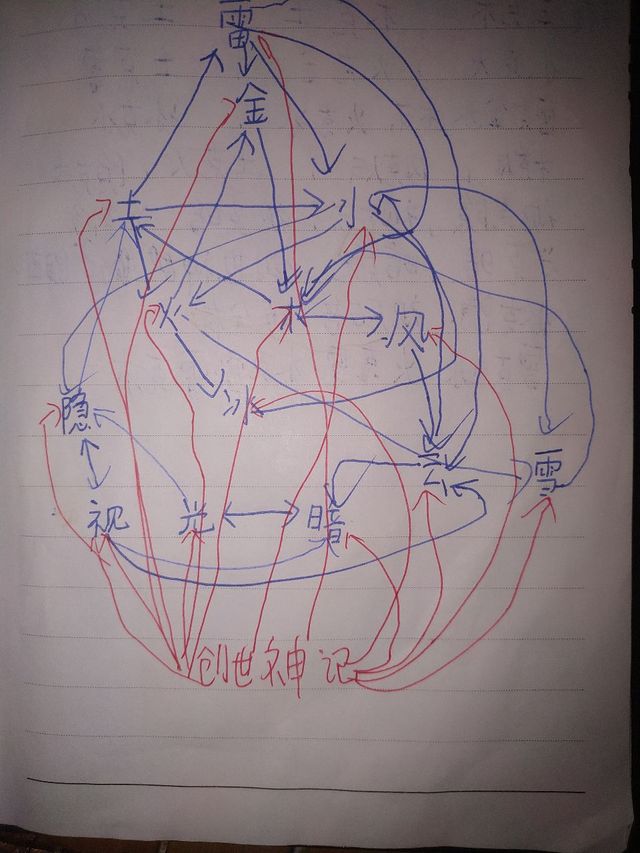 雷
金
土 水
火 木 风
隐 冰
云 雪
视 光 暗
创世神记